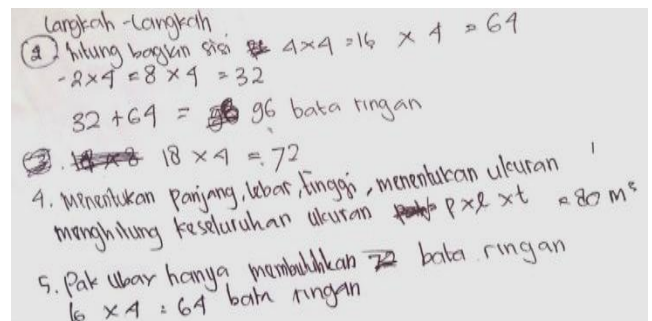 Langkah-Langkah
② hitung bagian sisi 4x4 = 16 x 4 = 64
- 2x4 = 8 x 4 = 32
32 + 64 = 96 bata ringan
③. 18 x 4 = 72
4. Menentukan panjang, lebar, tinggi, menentukan ukuran
menghitung keseluruhan ukuran p x l x t = 80 m³
5. Pak Ubay hanya membutuhkan 72 bata ringan
16 x 4 = 64 bata ringan